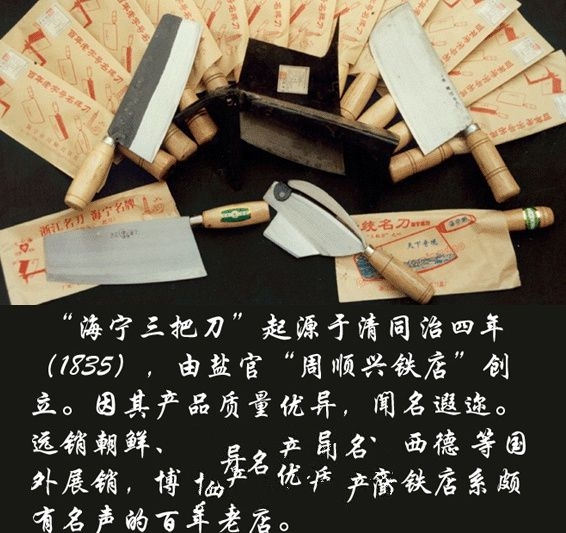 百年老字号名刀
浙江名刀 海宁名牌
铁名刀
“海宁三把刀”起源于清同治四年
（1835），由盐官“周顺兴铁店”创
立。因其产品质量优异，闻名遐迩。
远销朝鲜、 名 产 名 西德等国
外展销，博 优 产 铁店系颇
有名声的百年老店。